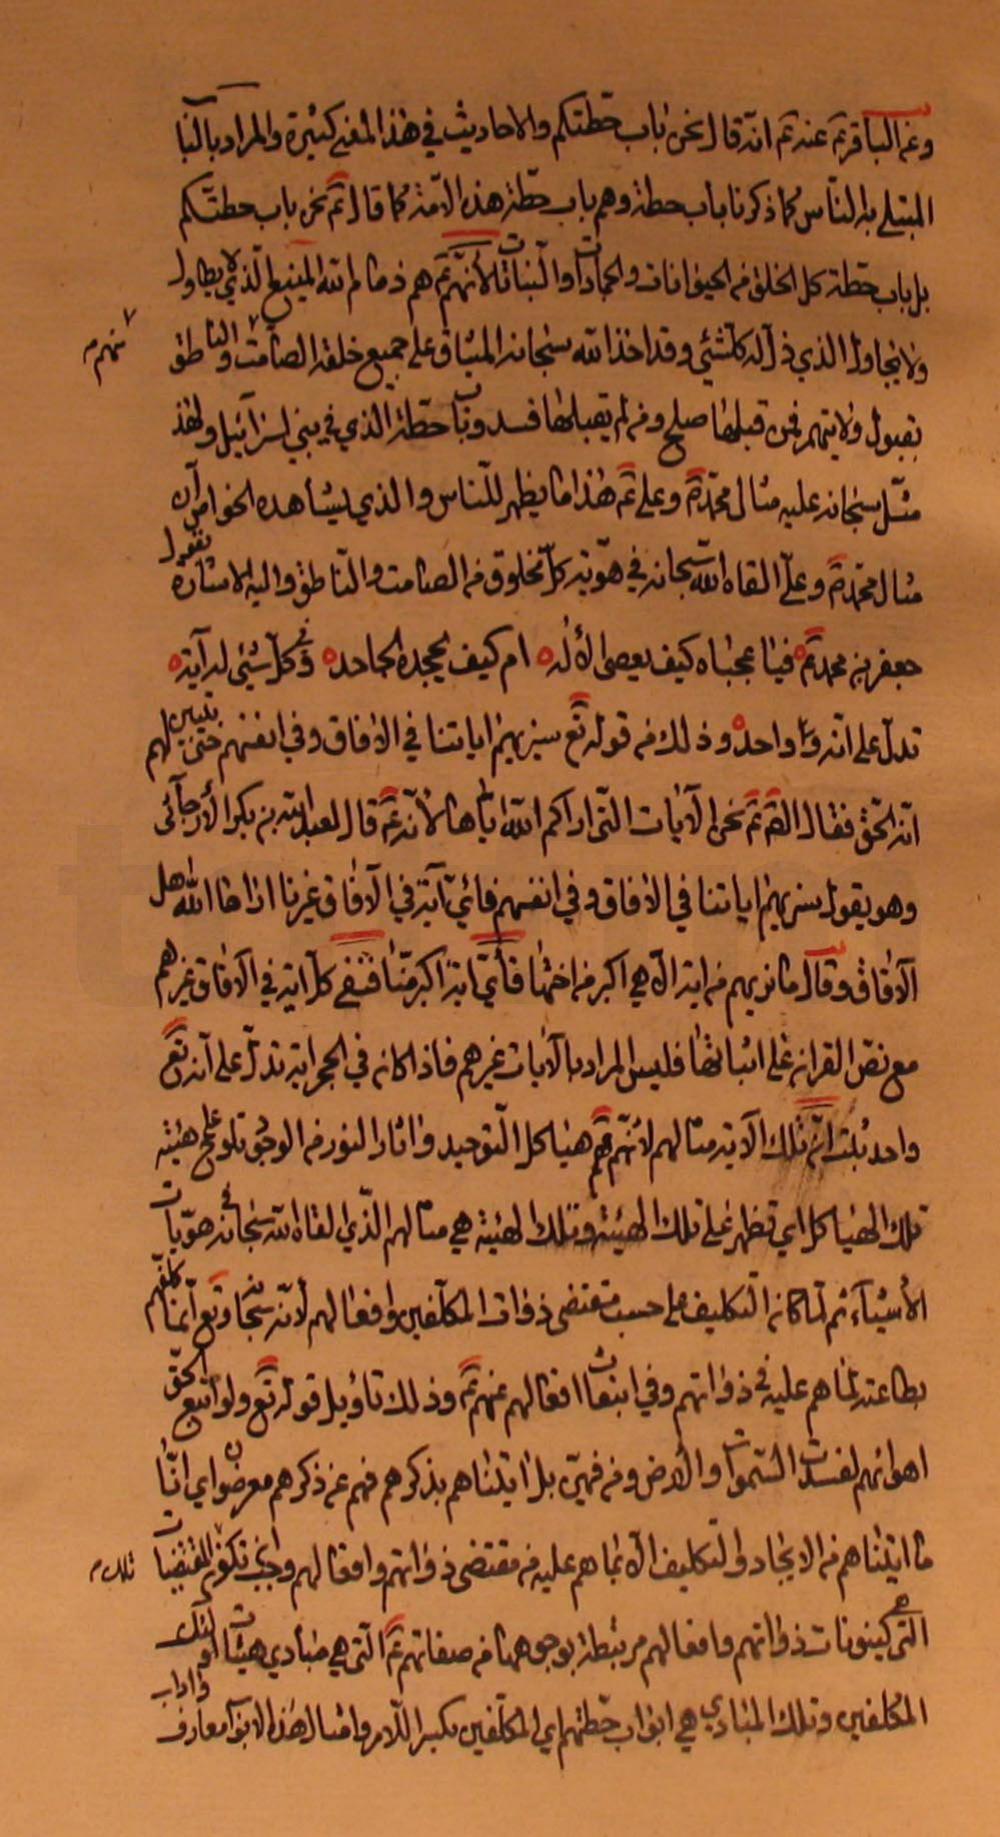 وعن الباقر عنه ع انه قال نحن باب حطتكم والاحاديث في هذا المعنى كثيرة والمراد بالباب
المبتلى به الناس كما ذكرنا باب حطة وهم باب حطة هذه الامة كما قال ع نحن باب حطتكم
بل باب حطة كل الخلق من الحيوانات والجمادات والنباتات لأنهم ع هم ذمام الله المنيع الذي لا يطاول
ولا يحاول الذي ذل له كل شيء وقد اخذ الله سبحانه الميثاق على جميع خلقه الصامت والناطق
منهم
بقبول ولايتهم فمن قبلها صلح ومن لم يقبلها فسد وباب حطة الذي في بني اسرائيل ولقد
مثل سبحانه عليه مثال محمد وعلي ع هذا ما يظهر للناس والذي يشاهده الخواص ان
مثال محمد وعلي القاه الله سبحانه في هوية كل مخلوق من الصامت والناطق واليه الاشارة بقول
جعفر بن محمد ع فيا عجباه كيف يعصى الاله ام كيف يجحده الجاحد وفي كل شيء له آية
تدل على انه واحد وذلك من قوله تع سنريهم اياتنا في الافاق وفي انفسهم حتى يتبين لهم
انه الحق فقال الصم ع نحن الآيات التي اراكم الله اياها لأنه ع قال لعبد الله بن بكر الأرجائي
وهو يقول سنريهم اياتنا في الافاق وفي انفسهم فاي آية في الآفاق غيرنا اراها الله اهل
الآفاق وقال ما نريهم من اية الا هي اكبر من اختها فأي اية اكبر منا فنفى كل اية في الآفاق غيرهم
مع نص القران على اثباتها فليس المراد بالآيات غيرهم فاذا كان في الحجر اية تدل على انه تع
واحد ثبت ان تلك الآية مثالهم لأنهم ع هياكل التوحيد واثار النور من الوجود تلوح على هيئة
تلك الهياكل اي تظهر على تلك الهيئة وتلك الهيئة هي مثالهم الذي القاه الله سبحانه في هويات
الأشياء ثم لما كان التكليف على حسب مقتضى ذوات المكلفين وافعالهم لانه سبحانه وتع انما كلفهم
بطاعته لما هم عليه في ذواتهم وفي انبعاث افعالهم عنهم ع وذلك تاويل قوله تع ولو اتبع الحق
اهواءهم لفسدت السموات والأرض ومن فيهن بل اتيناهم بذكرهم فهم عن ذكرهم معرضون اي انا
ما اتيناهم من الايجاد والتكليف الا بما هم عليه من مقتضى ذواتهم وافعالهم وجب تكون المقتضيات
تلك
التي هي كينونات ذواتهم وافعالهم مرتبطة بوجوهها من صفاتهم ع التي هي مبادي هيئات اولئك
المكلفين وتلك المبادي هي ابواب حطتهم اي المكلفين بكسر اللام وامثال هذه الابواب معارف واداب